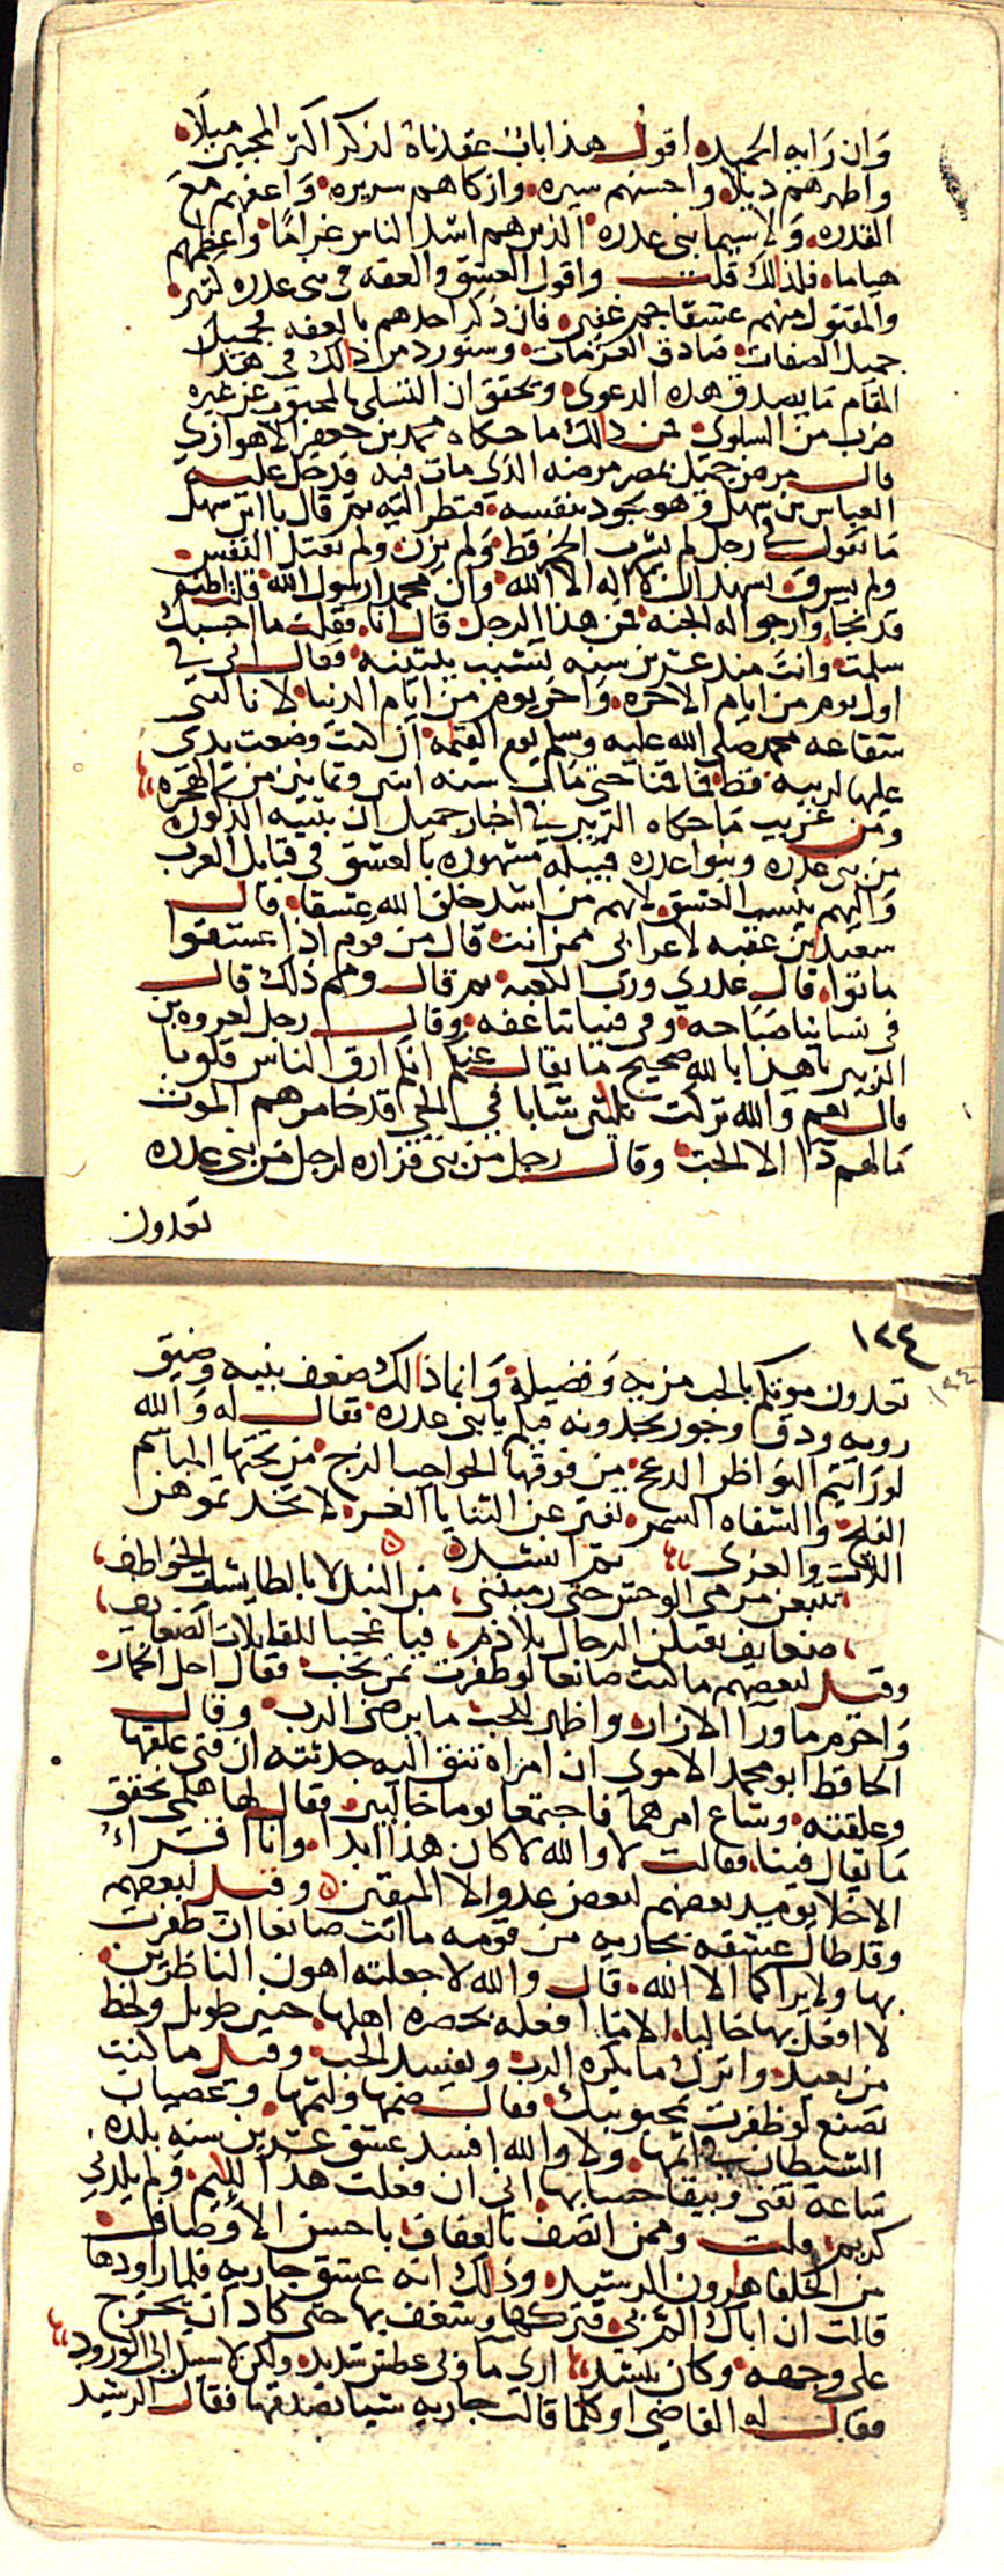 وان رايه الحميده اقول هذا باب عقدناه لذكر اكثر المحبين ميلا
واطهرهم ذيلا واحسنهم سيره وازكاهم سريره واعفهم مع
القدره ولا سيما بنى عدره الذين هم اشد الناس غراما واعظمهم
هياما فلذلك قلت واقول العشق والعفه في بنى عدره كثير
والمقتول منهم عشقا جم غفير فان ذكر احدهم بالعفه فجميل
جميل الصفات صادق العزمات وسنورد من ذالك في هذا
المقام ما يصدق هذه الدعوى وتحقق ان التسلى بالمحبوب عن غيره
ضرب من السلوى فمن ذالك ما حكاه محمد بن جعفر الاهوازي
قال مرض جميل بمصر مرضه الذي مات فيه فدخل عليه
العباس بن سهل وهو يجود بنفسه فنظر اليه ثم قال يا ابن سهل
ما تقول في رجل لم يشرب الخمر قط ولم يزن ولم يقتل النفس
ولم يسرق يشهد ان لا اله الا الله وان محمدا رسول الله قلت اظنه
قد نجا وارجوا له الجنه فمن هذا الرجل قال انا فقلت ما احسبك
سلمت وانت منذ عشرين سنه تشبب ببثينه فقال انى في
اول يوم من ايام الاخره واخر يوم من ايام الدنيا لا نالتنى
شفاعه محمد صلى الله عليه وسلم يوم القيمه ان كنت وضعت يدى
عليها لريبه قط فما قمنا حتى مات سنه اثنى وثمانين من الهجره
ومن غريب ما حكاه الزبير في اخبار جميل ان بثينه المذكوره
من بنى عدره وبنوا عدره قبيله مشهوره بالعشق في قبايل العرب
واليهم ينسب العشق لانهم من اشد خلق الله عشقا قال
سعيد بن عقبه لاعرابى ممن انت قال من قوم اذا عشقوا
ماتوا قال عدري ورب الكعبه ثم قال ومم ذلك قال
في نساينا صباحه وفى فتياننا عفه وقال رجل لعروه بن
الزبير يا هذا بالله صحيح ما يقال عنكم انكم ارق الناس قلوبا
قال نعم والله تركت ثلثين شابا في الحى قد خامرهم الموت
ما لهم دآ الا الحب وقال رجل من بنى فزاره لرجل من بنى عدره
تعدون
١٢٤
تعدون موتكم بالحب مزيه وفضيلة وانما ذالك ضعف بنيه وضيق
رويه ودق وخور تجدونه فيكم يا بنى عدره فقال له والله
لو رايتم النواظر الدعج من فوقها الحواجب الزج من تحتها المباسم
الفلج والشفاه السمر تفتر عن الثنايا الغر لا تخدتموها
اللات والعزى ثم انشد
تتبعن مرمى الوحش حتى رميننى من النبل لا بالطايشات الخواطف
ضعايف يقتلن الرجال بلا دم فيا عجبا للقاتلات الضعايف
وقيل لبعضهم ما كنت صانعا لو ظفرت بمن تحب فقال احل الخمار
واحرم ماورآ الازار واظهر للحب ما يرضى الرب وقال
الحافظ ابو محمد الاموى ان امراة تثق اليه حدثته ان فتى علقها
وعلقته وشاع امرهما فاجتمعا يوما خاليين فقال لها هلمي نحقق
ما يقال فينا فقالت لا والله لا كان هذا ابدا وانا اقراء
الاخلا يوميد بعضهم لبعض عدو الا المتقين وقيل لبعضهم
وقد طال عشقه بجاريه من قومه ما انت صانعا ان ظفرت
بها ولا يراكما الا الله قال والله لا جعلته اهون الناظرين
لا افعل بها خاليا الا ما افعله بحضره اهلها حنين طويل ولحظ
من بعيد واترك ما يكره الرب ويفسد الحب وقيل ما كنت
تصنع لو ظفرت بمحبوبتك فقال ضمها ولثمها وعصيان
الشيطان في اثمها ولا والله افسد عشق عشرين سنه بلذه
ساعه تفنى ويبقا حسابها انى ان فعلت هذا للئيم ولم يلدنى
كريم قلت وممن اتصف بالعفاف باحسن الاوصاف
من الخلفا هرون الرشيد وذلك انه عشق جاريه فلما راودها
قالت ان اباك الم بى فتركها وشغف بها حتى كاد ان يخرج
على وجهه وكان ينشد ارى ما وبى عطش شديد ولكن لا سبيل الى الورود
فقال له القاضى او كلما قالت جاريه شيا تصدقها فقال الرشيد